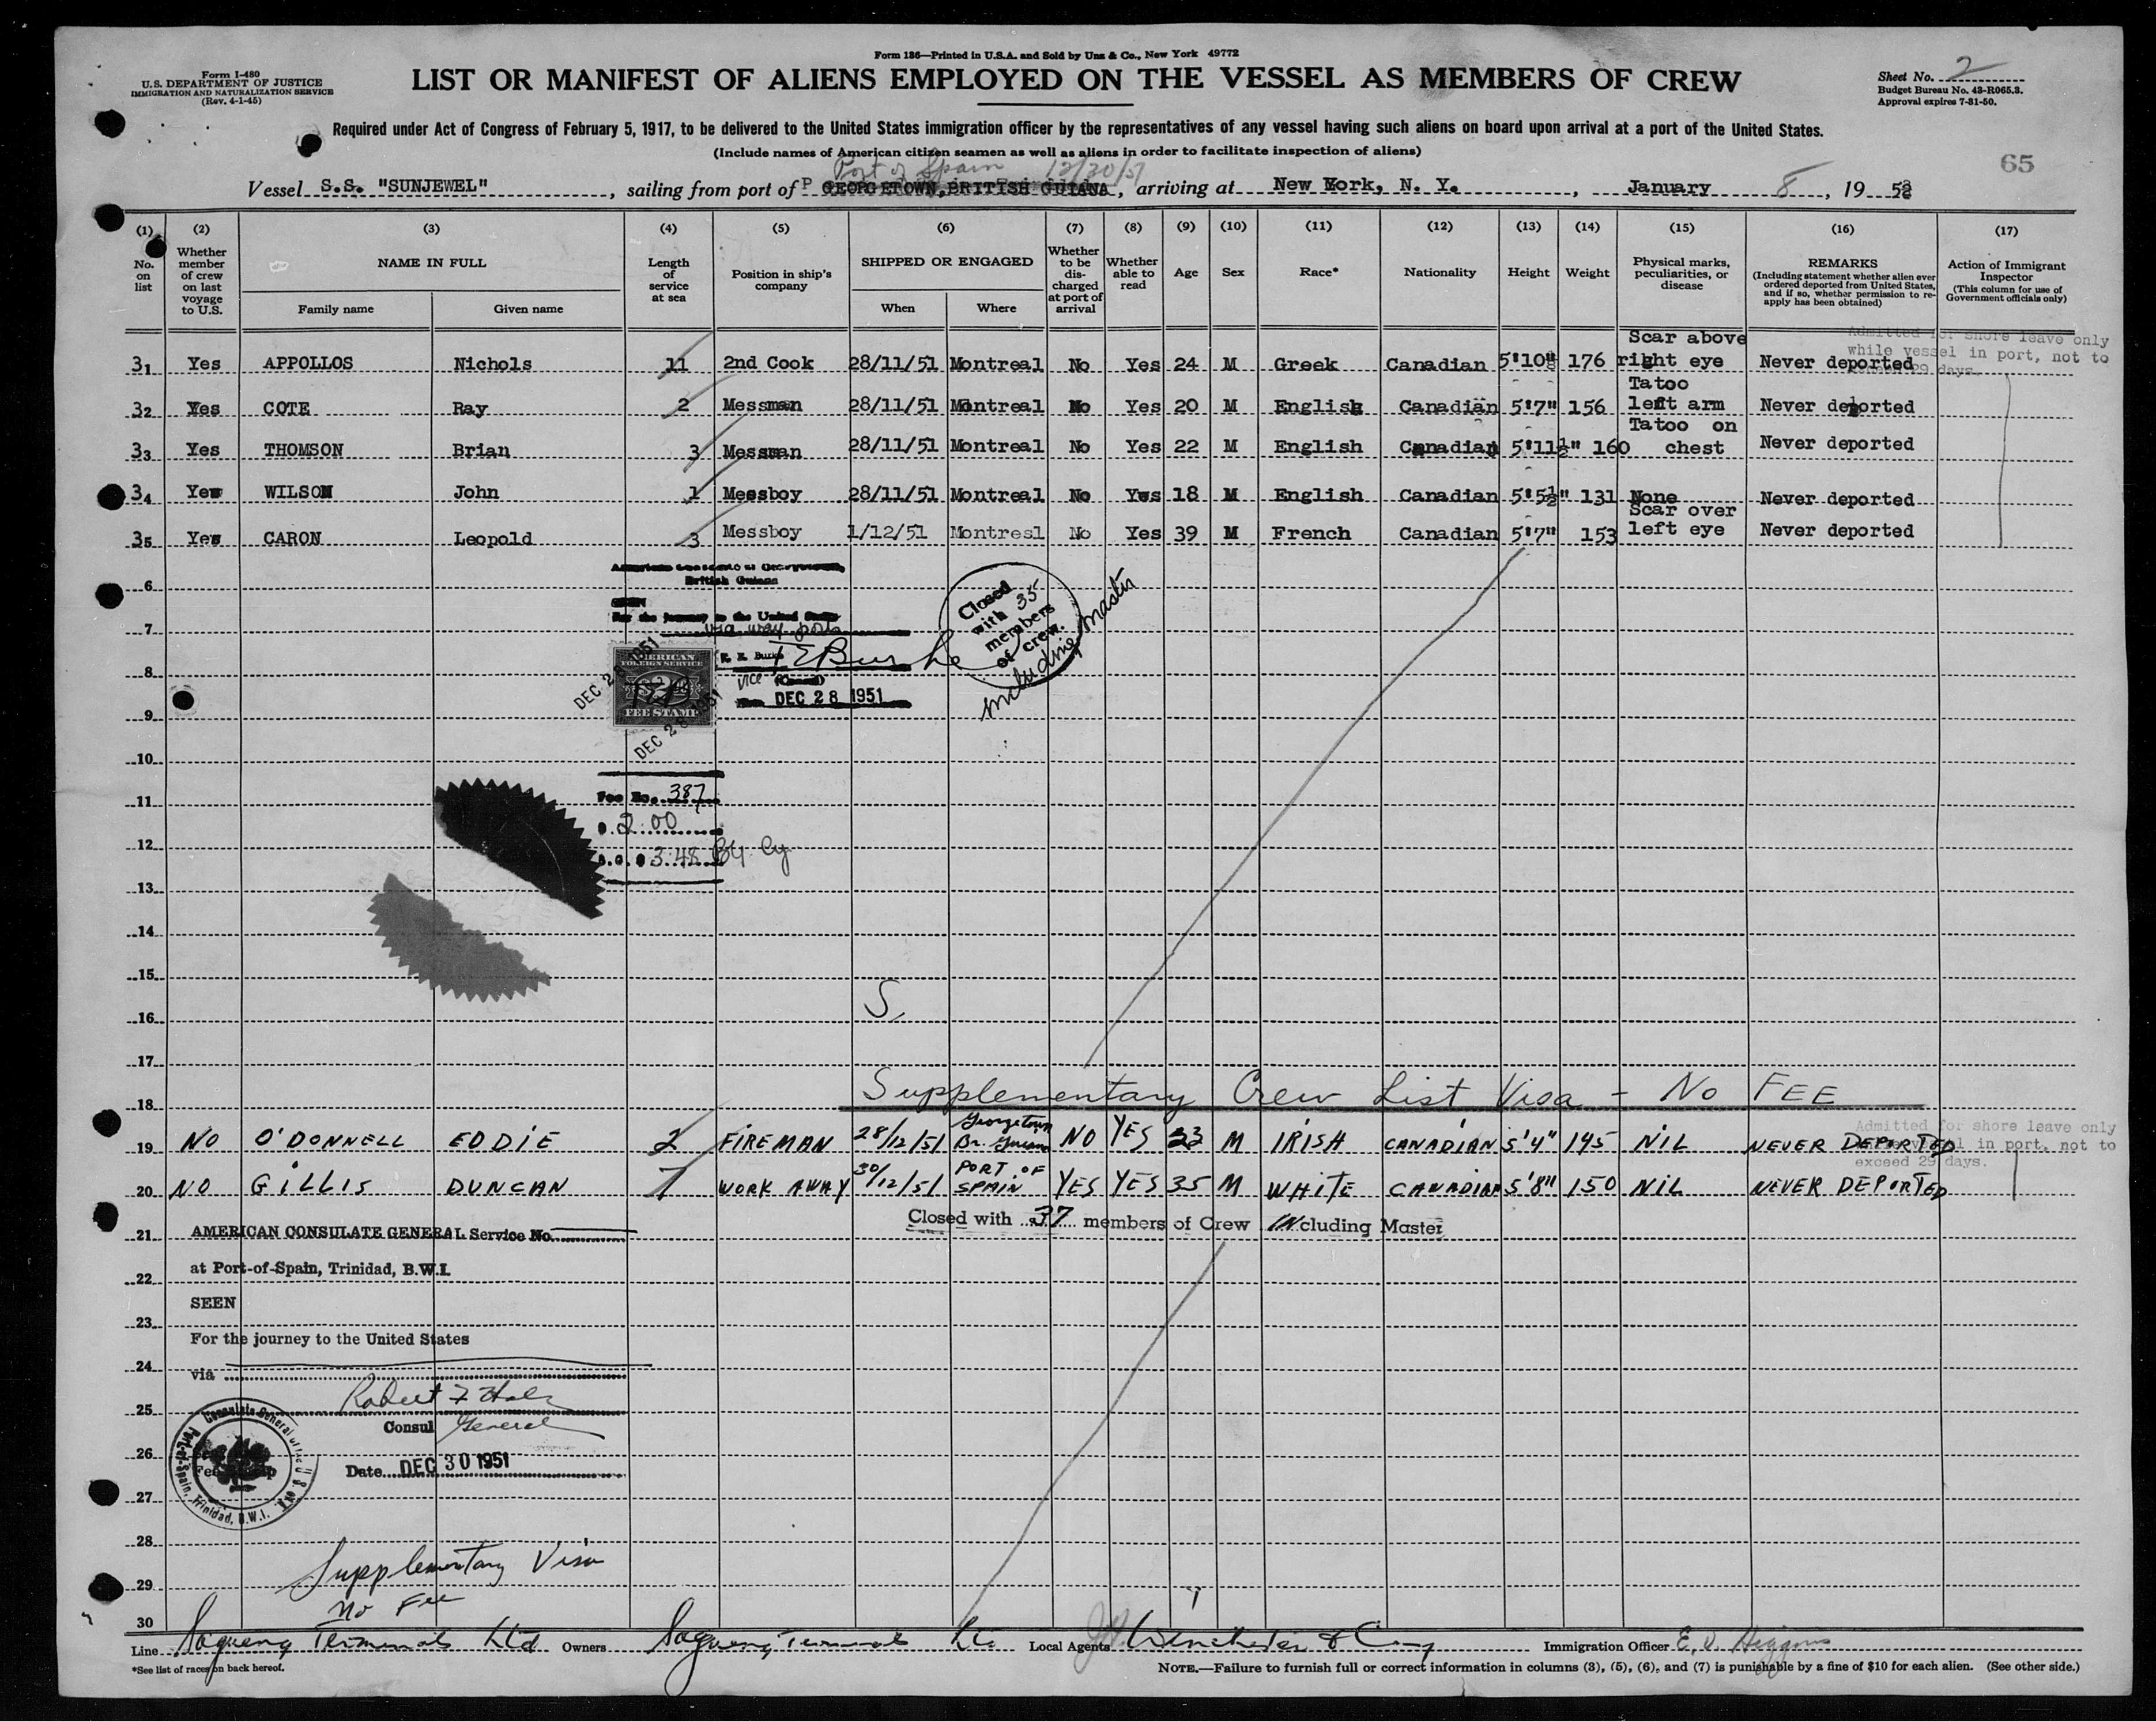 Form 136—Printed in U.S.A. and Sold by Unz & Co., New York 49772
Form I-480
U.S. DEPARTMENT OF JUSTICE
IMMIGRATION AND NATURALIZATION SERVICE
(Rev. 4-1-45)
LIST OR MANIFEST OF ALIENS EMPLOYED ON THE VESSEL AS MEMBERS OF CREW
Sheet No. 2
Budget Bureau No. 43-R065.3.
Approval expires 7-31-50.
Required under Act of Congress of February 5, 1917, to be delivered to the United States immigration officer by the representatives of any vessel having such aliens on board upon arrival at a port of the United States.
(Include names of American citizen seamen as well as aliens in order to facilitate inspection of aliens)
65
Port of Spain 12/30/51
Vessel S.S. "SUNJEWEL", sailing from port of P GEORGETOWN, BRITISH GUIANA, arriving at New York, N. Y., January 8, 1952
(1) No. on list (2) Whether member of crew on last voyage to U.S. (3) NAME IN FULL Family name Given name (4) Length of service at sea (5) Position in ship's company (6) SHIPPED OR ENGAGED When Where (7) Whether to be discharged at port of arrival (8) Whether able to read (9) Age (10) Sex (11) Race* (12) Nationality (13) Height (14) Weight (15) Physical marks, peculiarities, or disease (16) REMARKS (Including statement whether alien ever ordered deported from United States, and if so, whether permission to re-apply has been obtained) (17) Action of Immigrant Inspector (This column for use of Government officials only)
31 Yes APPOLLOS Nichols 11 2nd Cook 28/11/51 Montreal No Yes 24 M Greek Canadian 5'10" 176 Scar above right eye Never deported
Admitted for shore leave only
while vessel in port, not to
exceed 29 days.
32 Yes COTE Ray 2 Messman 28/11/51 Montreal No Yes 20 M English Canadian 5'7" 156 Tatoo left arm Never deported
33 Yes THOMSON Brian 3 Messman 28/11/51 Montreal No Yes 22 M English Canadian 5'11½" 160 Tatoo on chest Never deported
34 Yes WILSON John 1 Messboy 28/11/51 Montreal No Yes 18 M English Canadian 5'5½" 131 None Never deported
35 Yes CARON Leopold 3 Messboy 1/12/51 Montresl No Yes 39 M French Canadian 5'7" 153 Scar over left eye Never deported
6
British Guiana
SEEN
For the journey to the United States
7
via way ports
Closed with 35 members of crew.
including master
8
AMERICAN FOREIGN SERVICE
$2
FEE STAMP
DEC 28 1951
DEC 28 1951
E. E. Burke
Vice
(Consul)
DEC 28 1951
9
10
11
Fee No. 387
$ 2.00
12
3.48 BG. Cy
13
14
15
16
S,
17
18
Supplementary Crew List Visa - No FEE
19 NO O'DONNELL EDDIE 2 FIREMAN 28/12/51 Georgetown Br. Guiana NO YES 23 M IRISH CANADIAN 5'4" 145 NIL NEVER DEPORTED
Admitted for shore leave only
while vessel in port, not to
exceed 29 days.
20 NO GILLIS DUNCAN 7 WORK AWAY 30/12/51 PORT OF SPAIN YES YES 35 M WHITE CANADIAN 5'8" 150 NIL NEVER DEPORTED
Closed with 37 members of Crew including Master
21
AMERICAN CONSULATE GENERAL Service No.
22
at Port-of-Spain, Trinidad, B.W.I.
SEEN
23
For the journey to the United States
24
via
25
Consul General
26
Date DEC 30 1951
Consulate General of the U.S. of A. Port-of-Spain, Trinidad, B.W.I.
Fee Stamp
27
28
Supplementary Visa
29
No Fee
30
Line Saguenay Terminals Ltd Owners Saguenay Terminals Ltd Local Agents Winchester & Co Immigration Officer E. V. Higgins
*See list of races on back hereof.
NOTE.—Failure to furnish full or correct information in columns (3), (5), (6), and (7) is punishable by a fine of $10 for each alien. (See other side.)